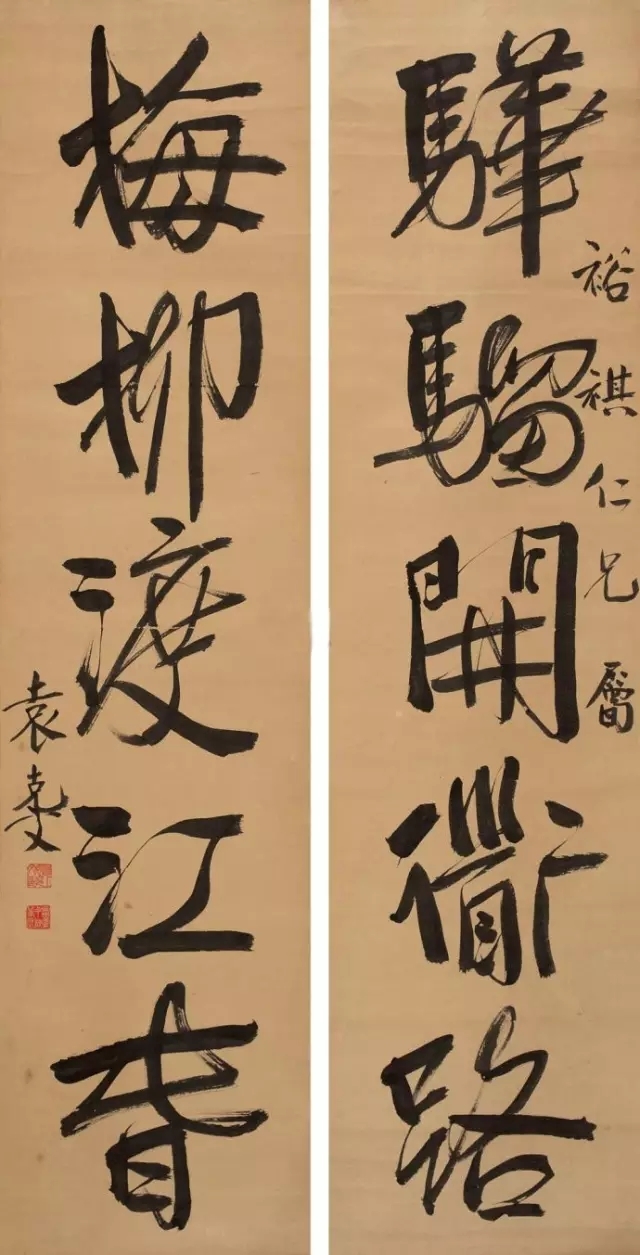 驊騮開衜路
裕祺仁兄屬
梅柳渡江春
袁克文